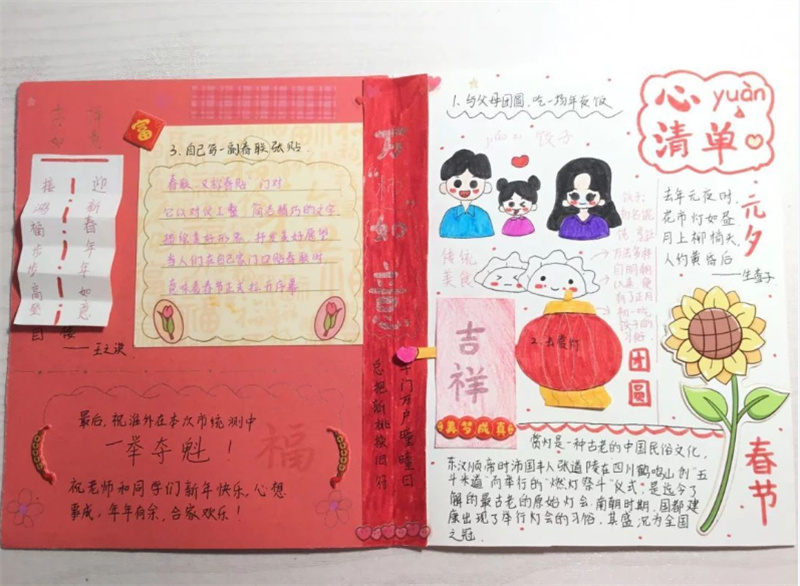 3. 自己写一副春联张贴.
春联 又称春贴 门对
它以对仗工整 简洁精巧的文字
描绘美好形象, 抒发美好愿望
当人们在自己家门口贴春联时
意味着春节正式拉开序幕
迎新春年年如意
接鸿福步步高登
—— 王之涣
最后, 祝淮外在本次市统测中
一举夺魁!
祝老师和同学们新年快乐, 心想
事成, 年年有余, 合家欢乐!
福
千门万户曈曈日
总把新桃换旧符
1. 与父母团圆, 吃一场年夜饭
心yuàn
清单
jiǎo zi 饺子
传统
美食
吉祥
美梦成真
2. 去赏灯
团圆
元夕
去年元夜时,
花市灯如昼
月上柳梢头,
人约黄昏后
——生查子
春节
赏灯是一种古老的中国民俗文化,
东汉顺帝时沛国丰人张道陵在四川鹤鸣山创“五
斗米道”而举行的“燃灯祭斗”仪式, 是迄今了
解的最古老的原始灯会. 南朝时期, 国都建
康出现了举行灯会的习俗, 其盛况为全国
之冠.